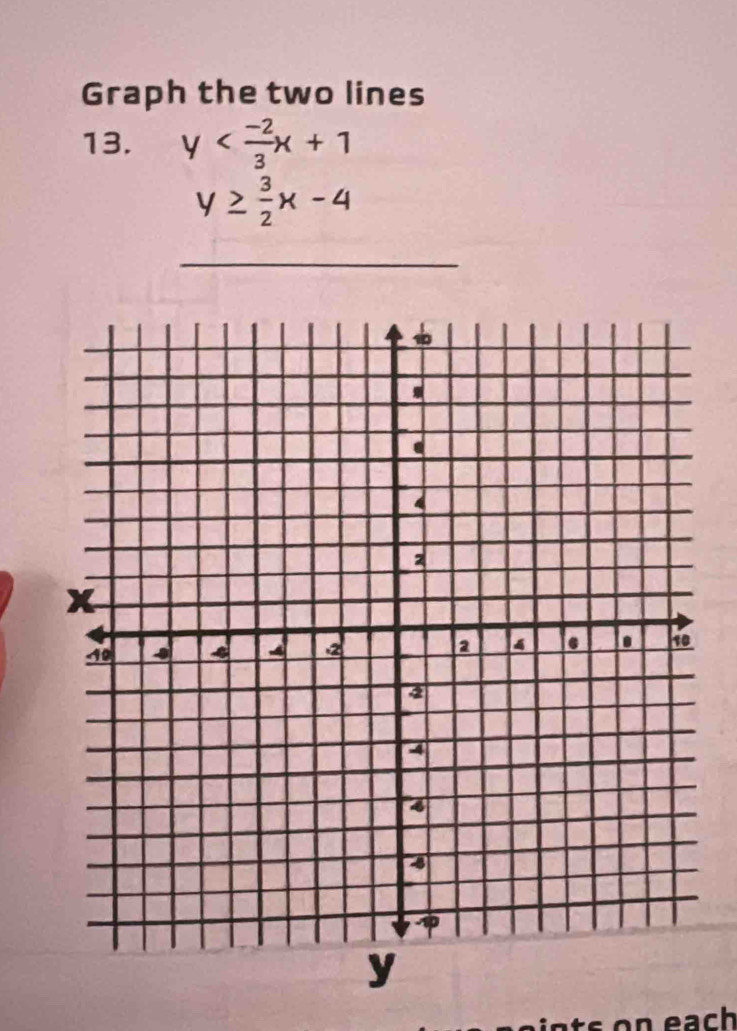 Graph the two lines
13. y < -2/3 x + 1
y ≥ 3/2 x - 4
10
8
6
4
2
X
-10 -8 -6 -4 -2 2 4 6 8 10
-2
-4
-6
-8
-10
y
on each